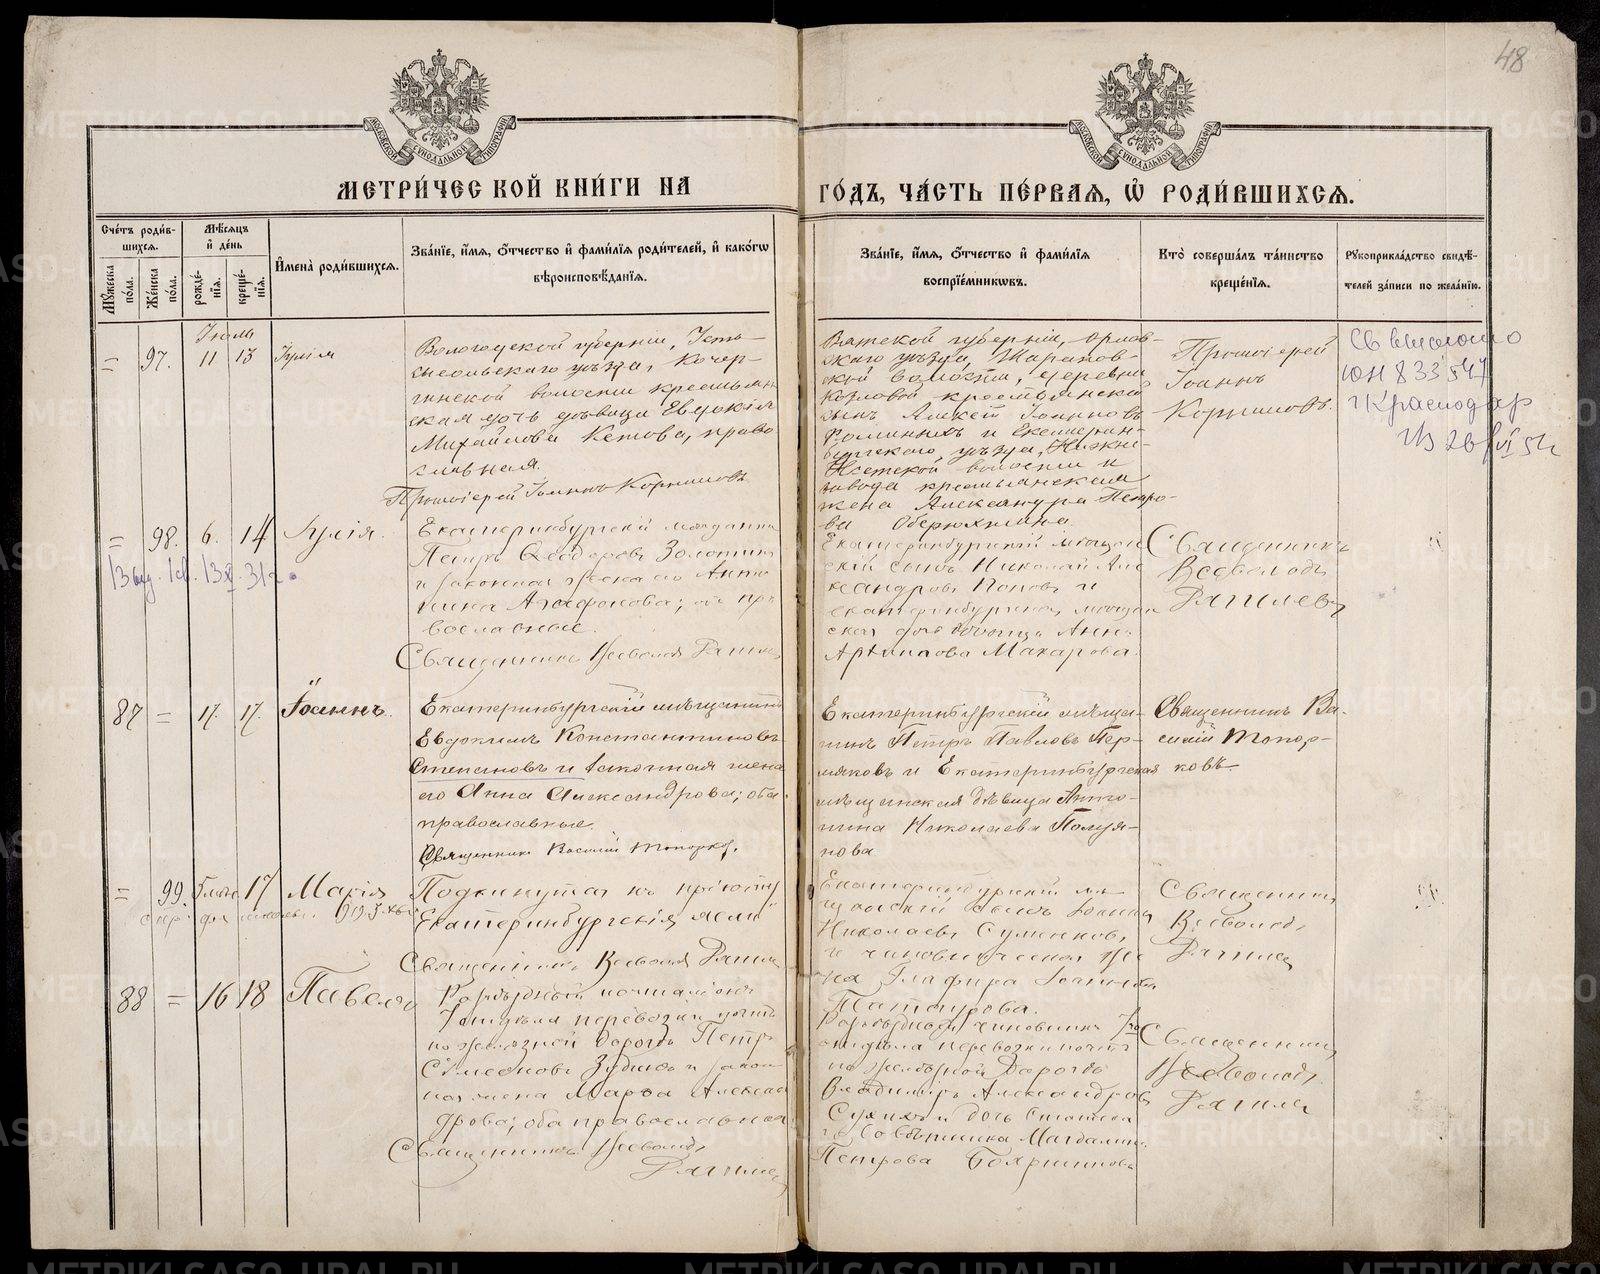 48
МОСКОВСКОЙ СѴНОДАЛЬНОЙ ТИПОГРАФІИ
МОСКОВСКОЙ СѴНОДАЛЬНОЙ ТИПОГРАФІИ
МЕТРИ́ЧЕСКОЙ КНИ́ГИ НА
ГО́ДЪ, ЧА́СТЬ ПЕ́РВАЯ, Ѡ҆ РОДИ́ВШИХСЯ.
Сче́тъ роди́в-
шихся.
Мѣ́сяцъ
и҆ де́нь
Мꙋ́жеска
по́ла.
Же́нска
по́ла.
рожде́-
нїя.
креще́-
нїя.
И҆мена̀ роди́вшихся.
Зва́нїе, и҆́мя, ѻ҆́тчество и҆ фами́лїя роди́телей, и҆ како́гѡ
вѣроисповѣ́данїя.
Зва́нїе, и҆́мя, ѻ҆́тчество и҆ фами́лїя
воспрїе́мникѡвъ.
Кто̀ соверша́лъ та́инство
креще́нїя.
Рꙋкоприкла́дство свидѣ́-
телей за́писи по жела́нїю.
Іюль
= 97. 11 13 Іулія
Вологодской губерніи, Усть-
сысольскаго уѣзда, Кочер-
гинской волости крестьян
ская дочь дѣвица Евдокія
Михайлова Кетова, право
славная.
Протоіерей Іоаннъ Корниловъ
Вятской губерніи, Орлов-
скаго уѣзда,
ской волости, деревни
крестьянскій
сынъ Алексій Іоанновъ
и Екатерин-
бургскаго уѣзда, Нижне-
Исетской волости и
завода крестьянская
жена Александра Петро-
ва Оберюхтина.
Протоіерей
Іоаннъ
Корниловъ.
Св выслано
ЮН 833547
г Краснодар
= 98. 6. 14 Іулія.
Екатеринбургскій мѣщанинъ
Петръ Ѳеодоровъ
и законная жена его Анто
нина Агафонова; оба пра
вославные.
Священникъ Всеволодъ
Екатеринбургскій мѣщан
скій сынъ Николай Але
ксандровъ Поповъ и
екатеринбургская мѣщан
ская дочь дѣвица Анна
Архипова Макарова.
Священникъ
Всеволодъ
87 = 17. 17. Іоаннъ.
Екатеринбургскій мѣщанинъ
Евдокимъ Константиновъ
Степановъ и законная жена
его Анна Александрова; оба
православные.
Священникъ Василій Топорковъ.
Екатеринбургскій мѣща-
нинъ Петръ Павловъ Пер-
мяковъ и Екатеринбургская
мѣщанская дѣвица Анто-
нина Николаева Полуя-
нова
Священникъ Ва-
силій Топор-
ковъ
= 99. 17 Марія
Подкинутая къ пріюту
Екатеринбургскія ясли"
Священникъ Всеволодъ
Екатеринбургскій мѣ
щанскій сынъ Іоаннъ
Николаевъ Суменковъ,
и чиновническая же
на Глафира Іоаннова
Священникъ
Всеволодъ
88 = 16 18 Павелъ
Разъѣздной почтальонъ
7 отдѣла перевозки почтъ
по желѣзной дорогѣ Петръ
Сѵмеоновъ Зубковъ и закон
ная жена Марѳа Алексан
дрова; оба православные
Священникъ Всеволодъ
Разъѣздной чиновникъ 7го
отдѣла перевозки почтъ
по желѣзной дорогѣ
Владиміръ Александровъ
Сухихъ и дочь Статска
го Совѣтника Магдалина
Петрова Бояршинова
Священникъ
Всеволодъ
METRIKI.GASO-URAL.RU